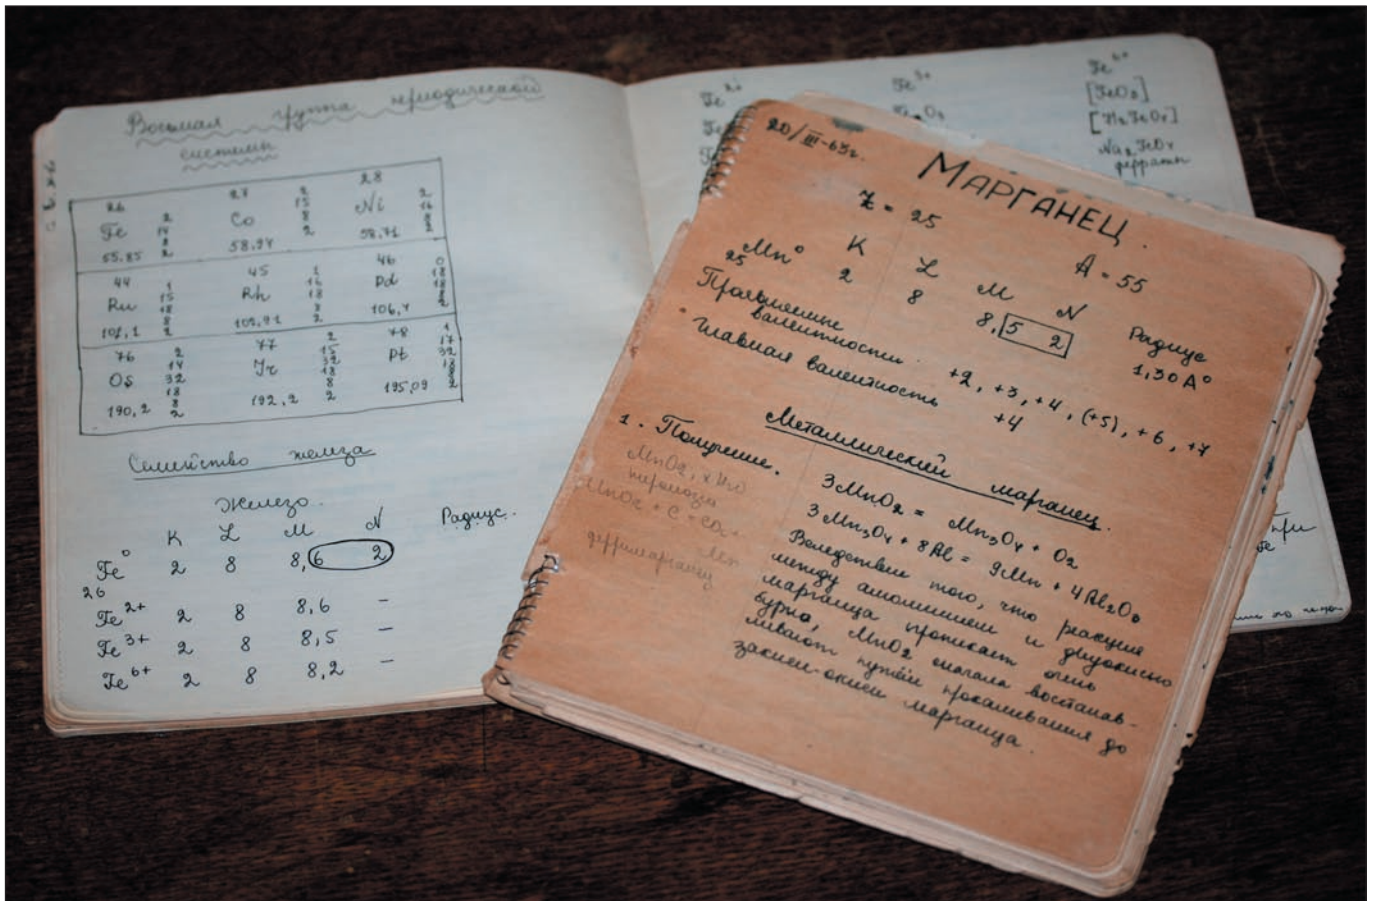 Восьмая группа периодической
системы
26 2 27 2 28 2
Fe 14 Co 15 Ni 16
8 8 8
55,85 2 58,94 2 58,71 2
44 1 45 1 46 0
Ru 15 Rh 16 Pd 18
18 18 18
8 8 8
101,1 2 102,91 2 106,4 2
76 2 77 2 78 1
Os 14 Ir 15 Pt 17
32 32 32
18 18 18
8 8 8
190,2 2 192,2 2 195,09 2
Семейство железа
Железо.
K L M N Радиус.
Fe⁰ 2 8 8,6 2
26
Fe²⁺ 2 8 8,6 –
Fe³⁺ 2 8 8,5 –
Fe⁶⁺ 2 8 8,2 –
Fe²⁺ Fe³⁺ Fe⁶⁺
[FeO₃]
[H₂FeO₄]
Na₂FeO₄
ферраты
при
20/III-63г.
МАРГАНЕЦ.
Z = 25 A = 55
K L M N Радиус
25 Mn⁰ 2 8 8,5 2 1,30 A⁰
Проявляемые
валентности. +2, +3, +4, (+5), +6, +7
Главная валентность +4
Металлический марганец.
1. Получение.
3MnO₂ = Mn₃O₄ + O₂
3Mn₃O₄ + 8Al = 9Mn + 4Al₂O₃
Вследствие того, что реакция
между алюминием и двуокисью
марганца протекает очень
бурно, MnO₂ сначала востанав-
ливают путём прокаливания до
закиси-окиси марганца.
MnO₂ · xH₂O
пиролюзит
MnO₂ + C + CO₂ +
Mn
ферромарганец